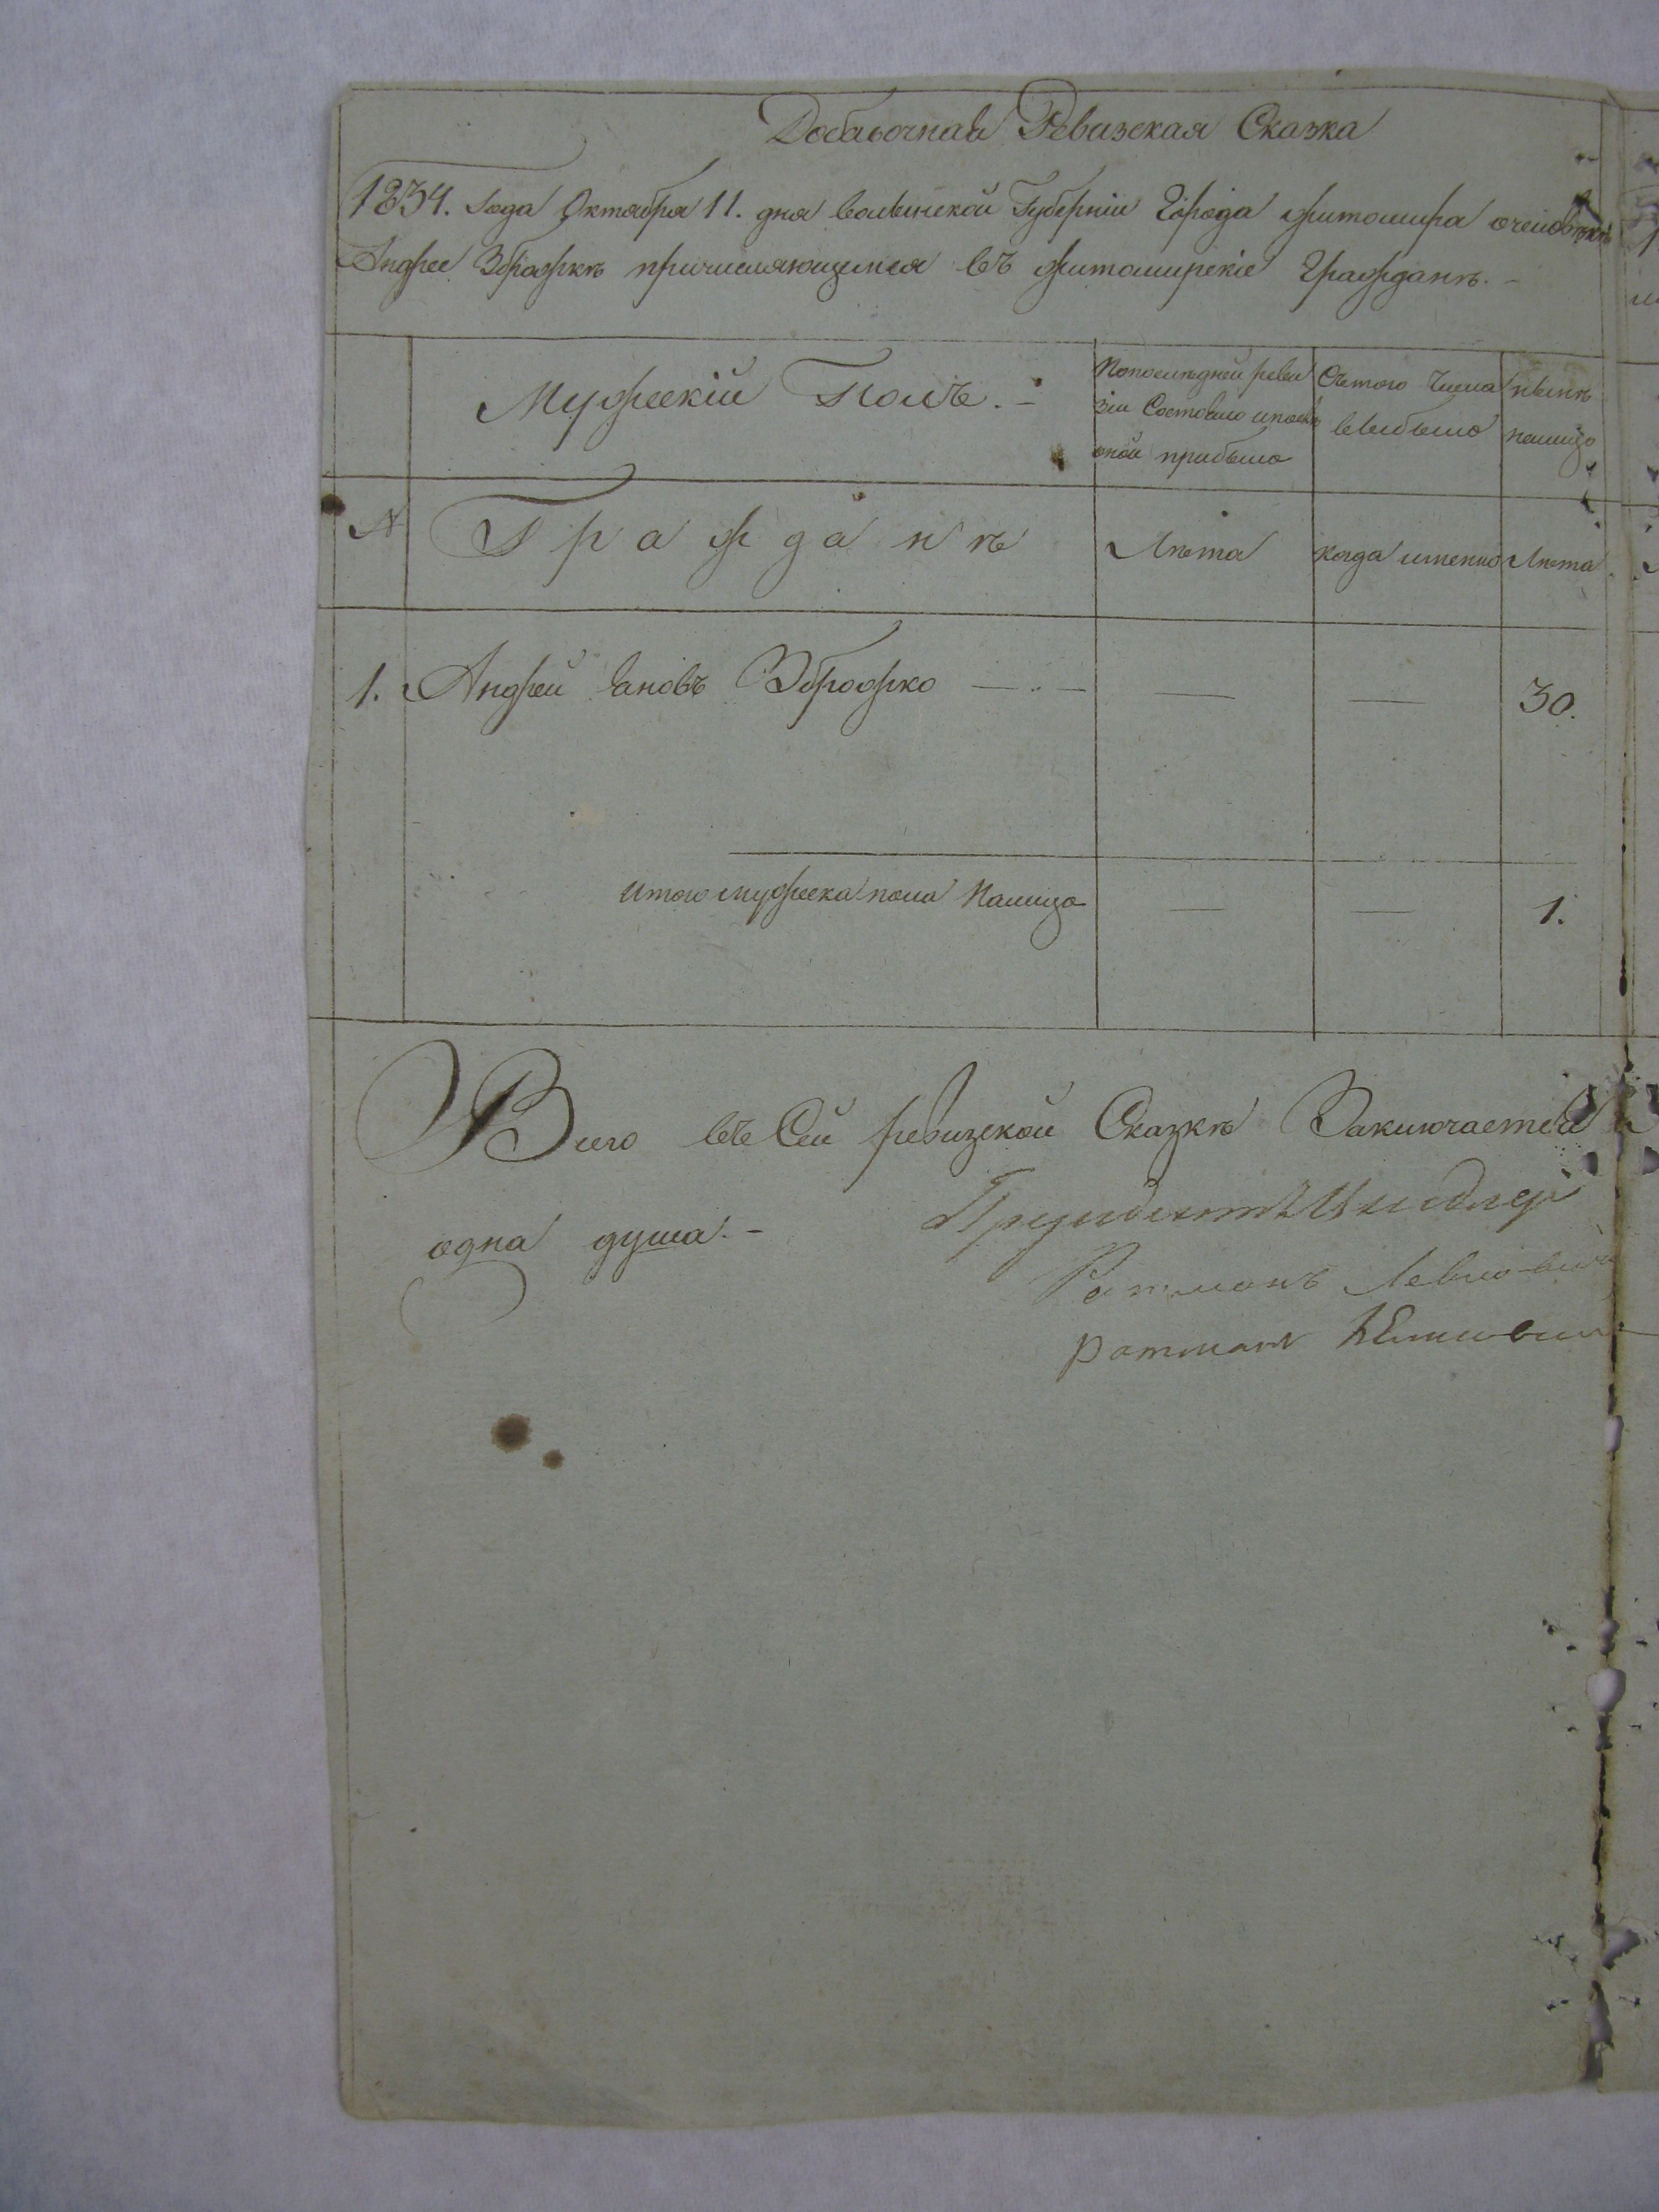 Добавочная Ревизская Сказка
1834. Года Октября 11. дня волынской Губерніи Города житомира о человѣкѣ
Андрее Збражкѣ причисляющимся въ житомирскіе Граждане.-
Мужескій Полъ.-
Попоследней реви
зіи Состояло ипослѣ
оной прибыло
Съ того Числа
выбыло
нынѣ
налицо
№ Граждане Лѣта когда именно Лѣта
1. Андрей Яновъ Зброжко — — 30.
Итого мужеска пола Налицо — — 1.
Всего въ Сей ревизской Сказкѣ Заключается
одна душа.-
Ратманъ
Ратман